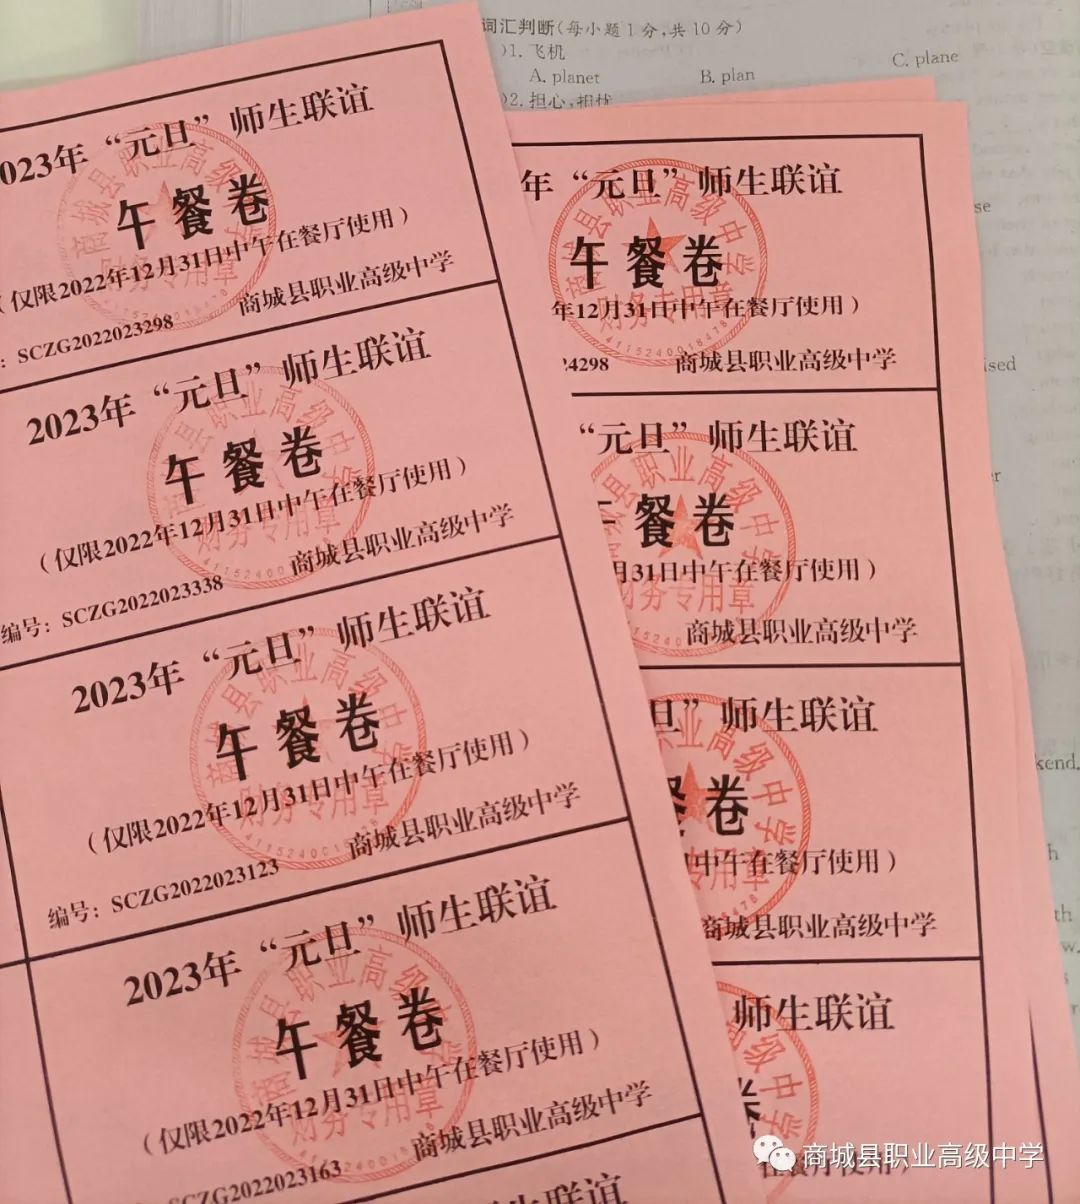 词汇判断(每小题1分,共10分)
)1. 飞机
A. planet
B. plan
C. plane
)2. 担心,担忧
023年“元旦”师生联谊
午餐卷
(仅限2022年12月31日中午在餐厅使用)
: SCZG2022023298
商城县职业高级中学
2023年“元旦”师生联谊
午餐卷
(仅限2022年12月31日中午在餐厅使用)
编号: SCZG2022023338
商城县职业高级中学
2023年“元旦”师生联谊
午餐卷
(仅限2022年12月31日中午在餐厅使用)
编号: SCZG2022023123
商城县职业高级中学
2023年“元旦”师生联谊
午餐卷
(仅限2022年12月31日中午在餐厅使用)
SCZG2022023163
商城县职业高级中学
“元旦”师生联谊
年“元旦”师生联谊
午餐卷
年12月31日中午在餐厅使用)
24298
商城县职业高级中学
“元旦”师生联谊
餐卷
月31日中午在餐厅使用)
商城县职业高级中学
旦”师生联谊
餐卷
中午在餐厅使用)
商城县职业高级中学
师生联谊
卷
在餐厅使用)
商城县职业高级中学
财务专用章
4115240018478
kend.
商城县职业高级中学